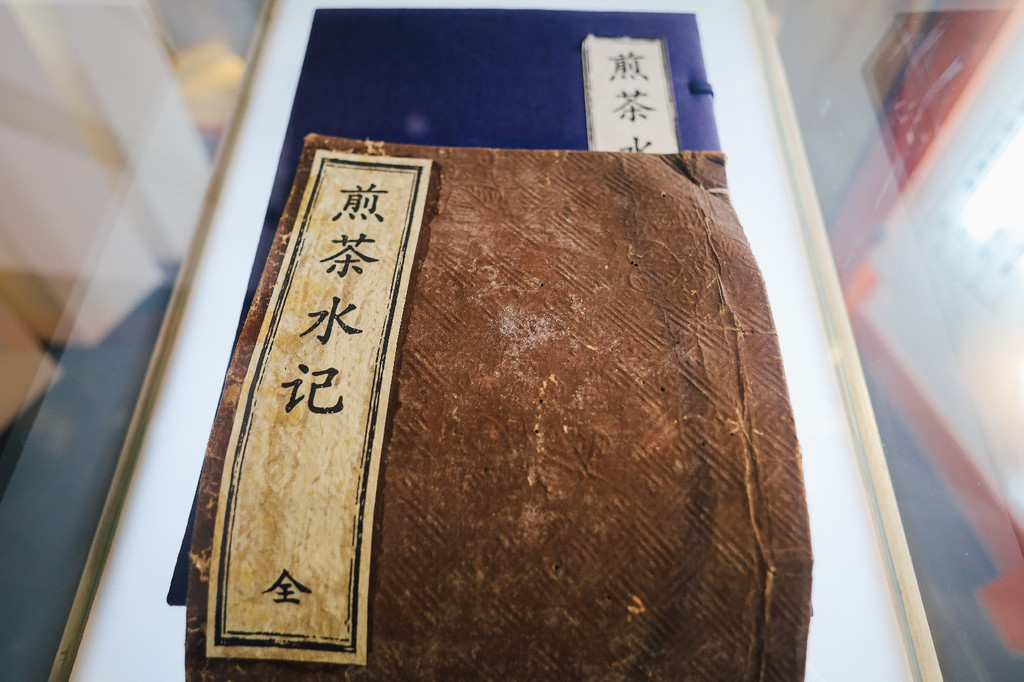 煎茶水记
全
煎茶水